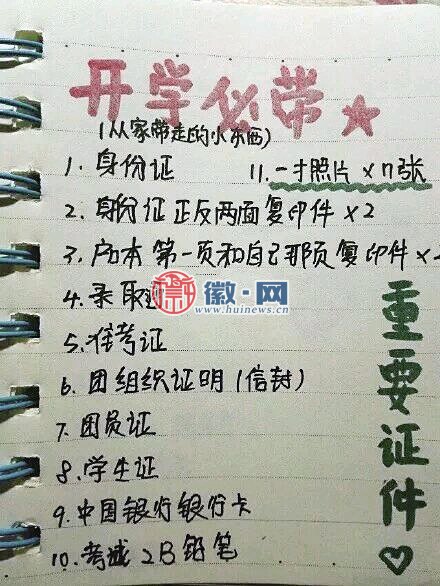 开学必带
(从家带走的小东西)
1.身份证
11.一寸照片×n张
2.身份证正反两面复印件×2
3.户口本第一页和自己那页复印件×
4.录取
徽·网
www.huinews.cn
5.准考证
6.团组织证明(信封)
7.团员证
8.学生证
9.中国银行银行卡
10.考试2B铅笔
重要证件